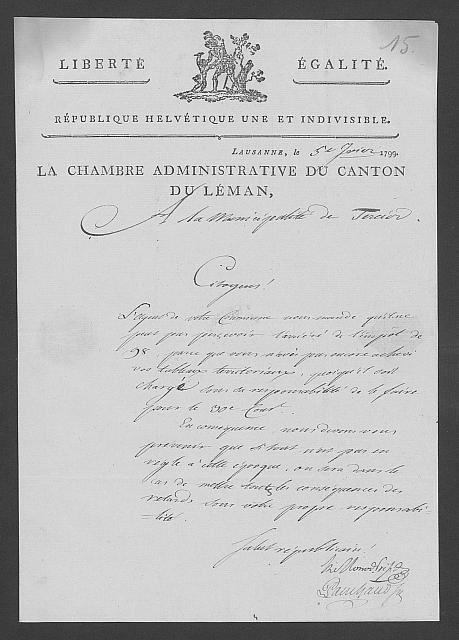 15.
LIBERTÉ ÉGALITÉ.
RÉPUBLIQUE HELVÉTIQUE UNE ET INDIVISIBLE.
LAUSANNE, le 5e 1799.
LA CHAMBRE ADMINISTRATIVE DU CANTON
DU LÉMAN,
A la Municipalité de
Citoyens!
L'agent de votre Commune nous mande qu'il ne
peut pas percevoir l'arriéré de l'impôt de
98, parce que vous n'avés pas encore achevé
vos tableaux territoriaux, puisqu'il soit
chargé sous sa responsabilité de le faire
pour le Court.
En conséquence, nous devons vous
prévenir que si tout n'est pas en
règle à cette époque, on sera dans le
cas de mettre toutes les conséquences des
retards sous votre propre responsabi-
=lité.
Salut républicain!